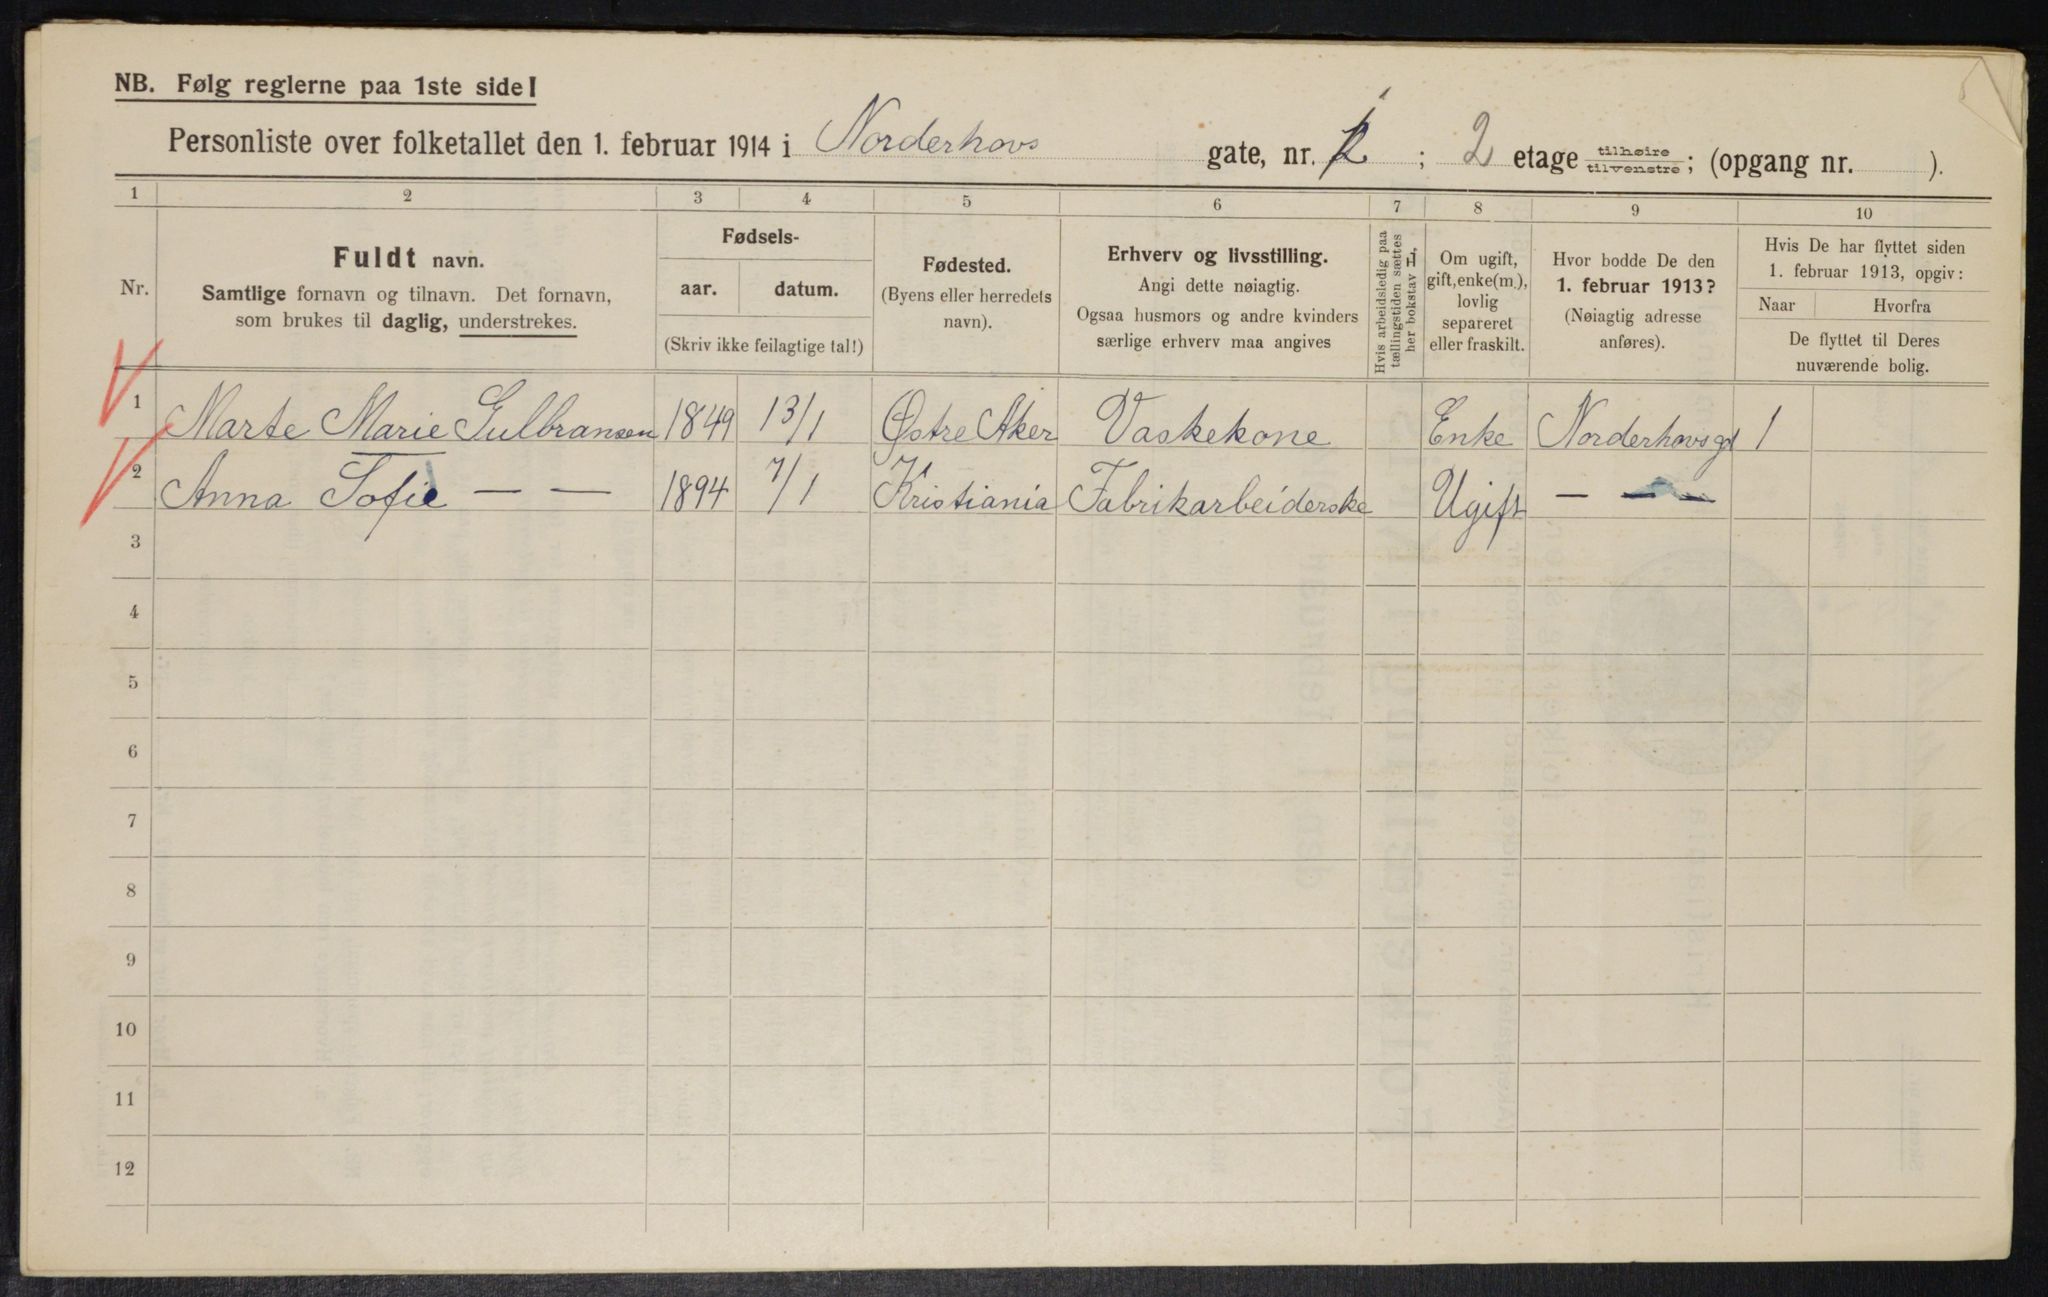 NB. Følg reglerne paa 1ste side!
Personliste over folketallet den 1. februar 1914 i Norderhovs gate, nr. 1 ; 2 etage tilhøire tilvenstre; (opgang nr. ).
1 2 3 4 5 6 7 8 9 10
Nr.
Fuldt navn.
Samtlige fornavn og tilnavn. Det fornavn,
som brukes til daglig, understrekes.
Fødsels-
aar. datum.
(Skriv ikke feilagtige tal!)
Fødested.
(Byens eller herredets
navn).
Erhverv og livsstilling.
Angi dette nøiagtig.
Ogsaa husmors og andre kvinders
særlige erhverv maa angives
Hvis arbeidsledig paa
tællingstiden sættes
her bokstav L,
Om ugift,
gift, enke(m.),
lovlig
separeret
eller fraskilt.
Hvor bodde De den
1. februar 1913?
(Nøiagtig adresse
anføres).
Hvis De har flyttet siden
1. februar 1913, opgiv:
Naar Hvorfra
De flyttet til Deres
nuværende bolig.
1 Marte Marie Gulbransen 1849 13/1 Østre Aker Vaskekone Enke Norderhovsgd 1
2 Anna Sofie — — 1894 7/1 Kristiania Fabrikarbeiderske Ugift — — —
3
4
5
6
7
8
9
10
11
12